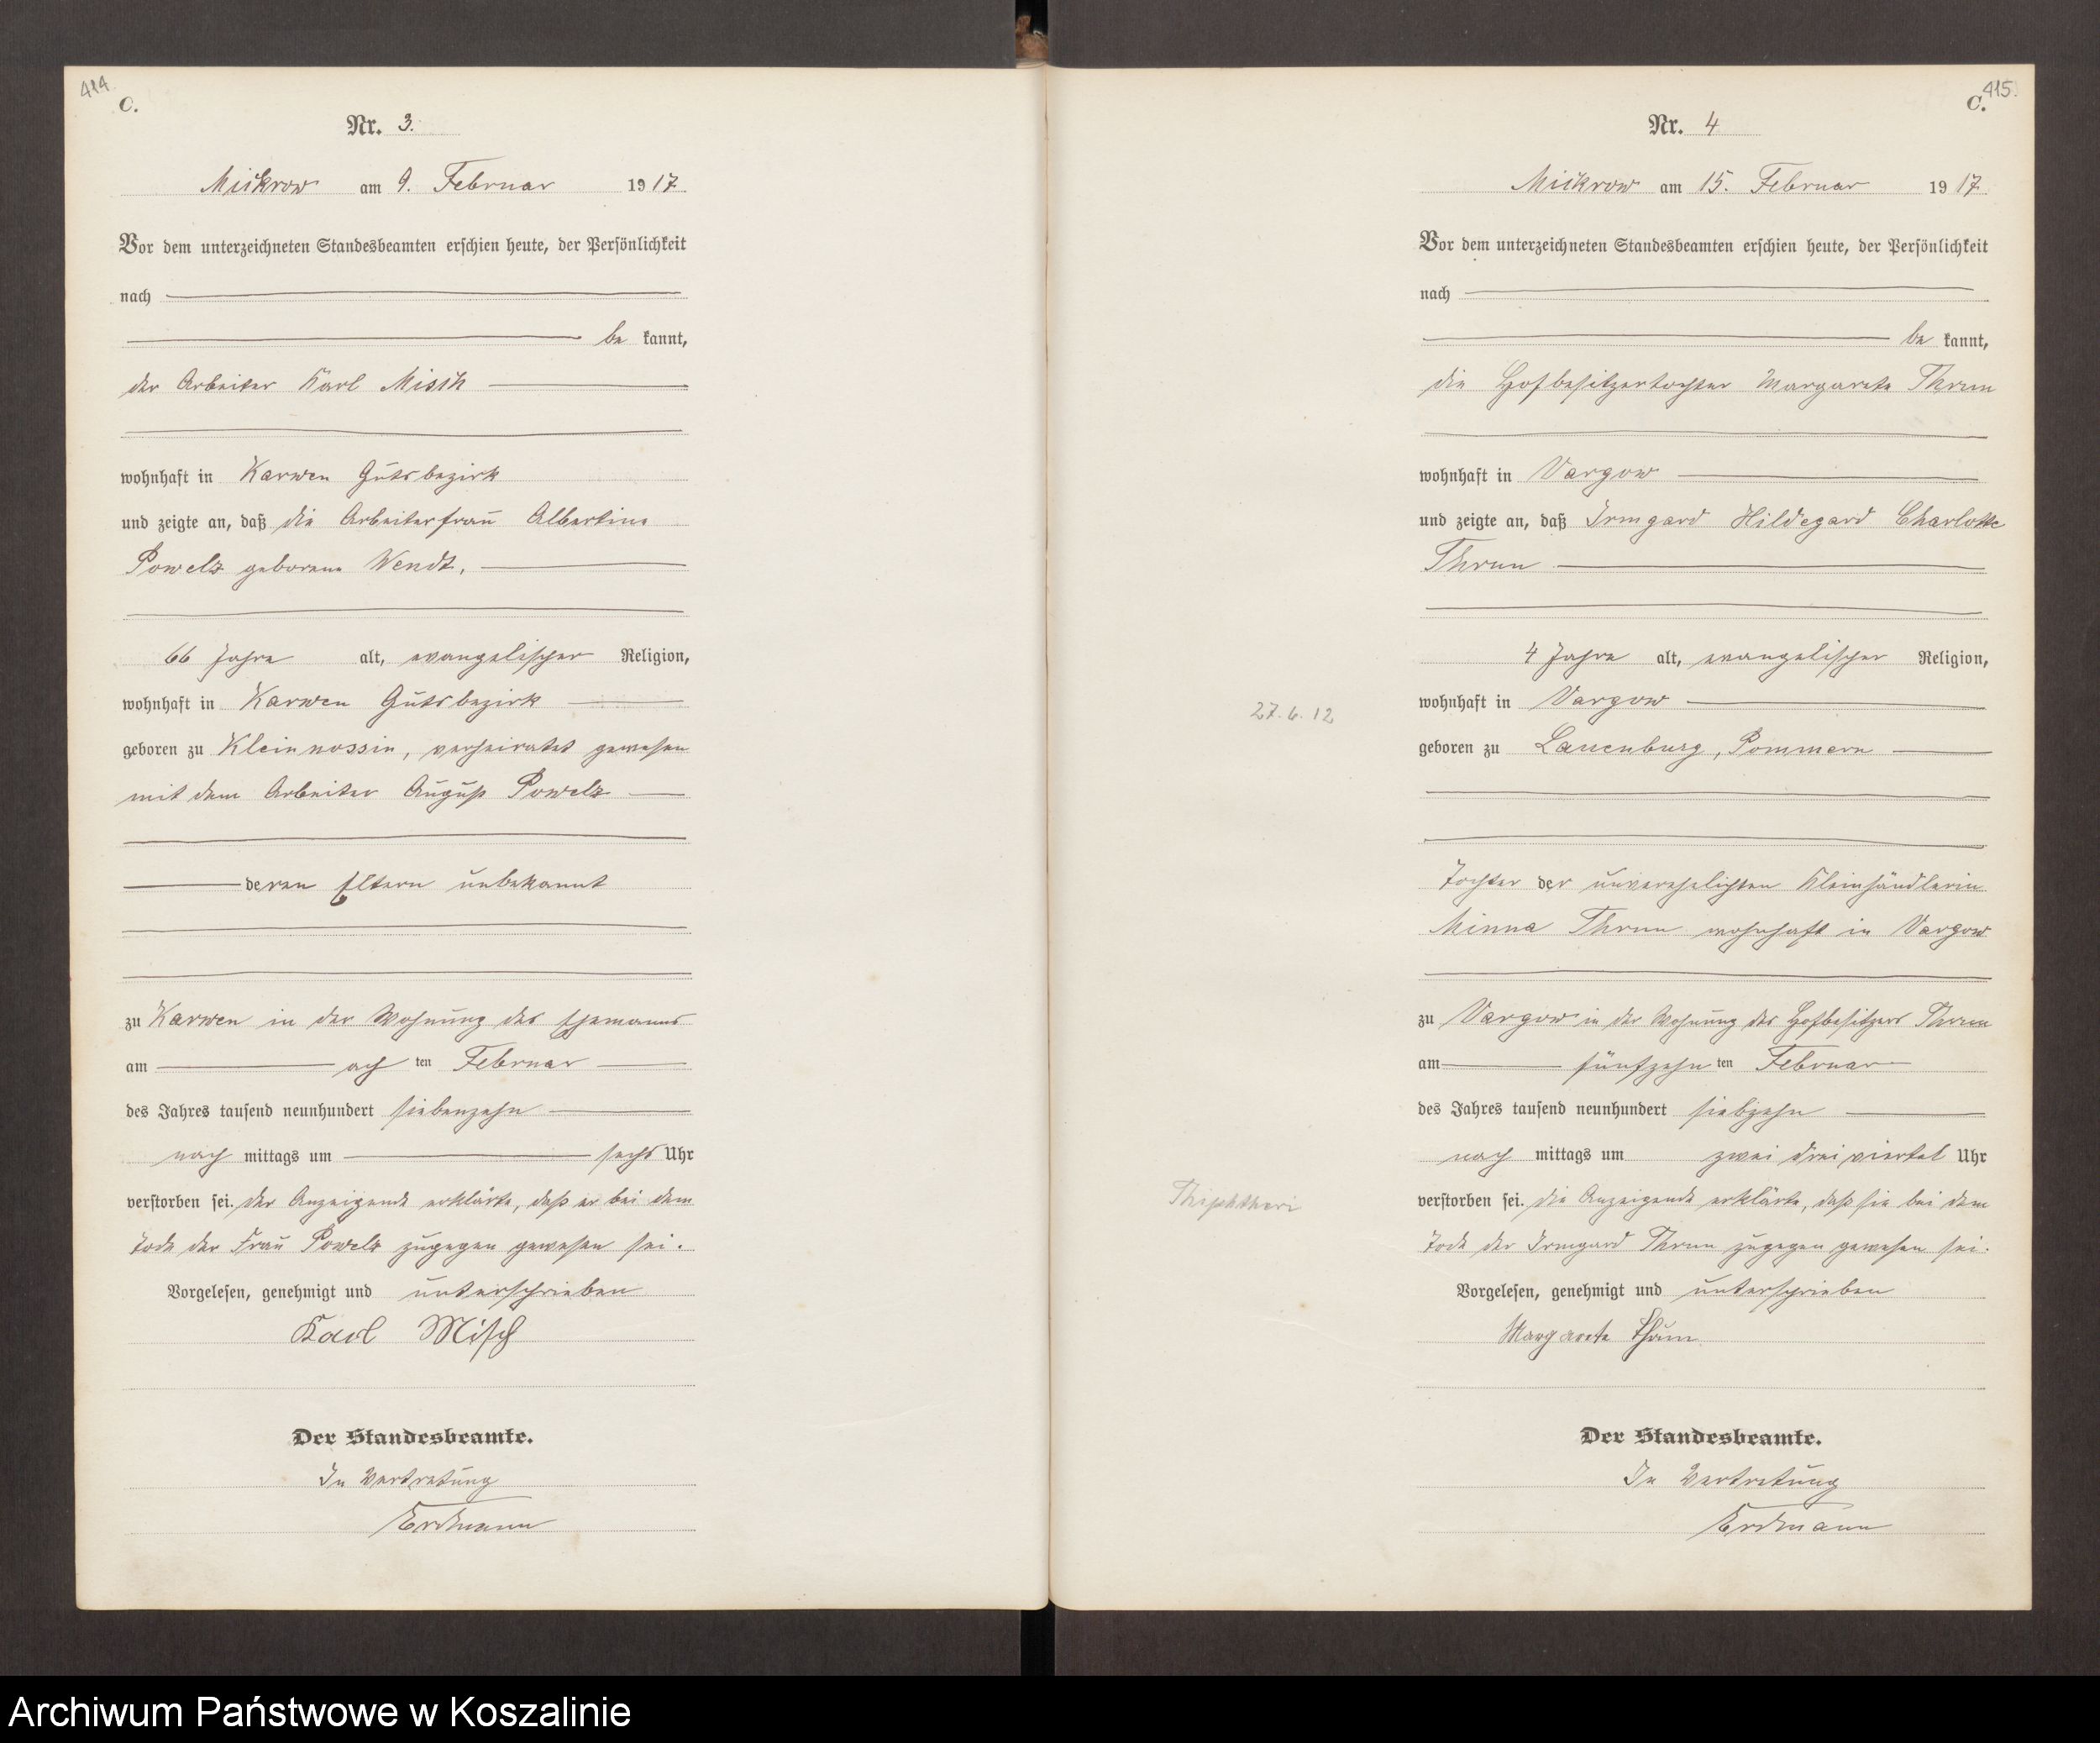 414.
C.
Nr. 3.
Mickrow am 9. Februar 1917
Vor dem unterzeichneten Standesbeamten erschien heute, der Persönlichkeit
nach
be kannt,
der Arbeiter Karl Misch
wohnhaft in Karwen Gutsbezirk
und zeigte an, daß die Arbeiterfrau Albertine
Powelz geborene Wendt,
66 Jahre alt, evangelischer Religion,
wohnhaft in Karwen Gutsbezirk
geboren zu Kleinnossin, verheiratet gewesen
mit dem Arbeiter August Powelz
deren Eltern unbekannt
zu Karwen in der Wohnung des Ehemanns
am achten Februar
des Jahres tausend neunhundert siebenzehn
nach mittags um sechs Uhr
verstorben sei. Der Anzeigende erklärte, daß er bei dem
Tode der Frau Powelz zugegen gewesen sei.
Vorgelesen, genehmigt und unterschrieben
Karl Misch
Der Standesbeamte.
In Vertretung
Erdmann
415.
C.
Nr. 4
Mickrow am 15. Februar 1917
Vor dem unterzeichneten Standesbeamten erschien heute, der Persönlichkeit
nach
be kannt,
die Hofbesitzertochter Margarete Thrun
wohnhaft in Vargow
und zeigte an, daß Irmgard Hildegard Charlotte
Thrun
4 Jahre alt, evangelischer Religion,
27.6.12
wohnhaft in Vargow
geboren zu Lauenburg, Pommern
Tochter der unverehelichten Kleinhändlerin
Minna Thrun wohnhaft in Vargow
zu Vargow in der Wohnung des Hofbesitzers Thrun
am fünfzehnten Februar
des Jahres tausend neunhundert siebzehn
nach mittags um zwei drei viertel Uhr
Thiphtheri
verstorben sei. Die Anzeigende erklärte, daß sie bei dem
Tode der Irmgard Thrun zugegen gewesen sei.
Vorgelesen, genehmigt und unterschrieben
Margarete Thrun
Der Standesbeamte.
In Vertretung
Erdmann
Archiwum Państwowe w Koszalinie